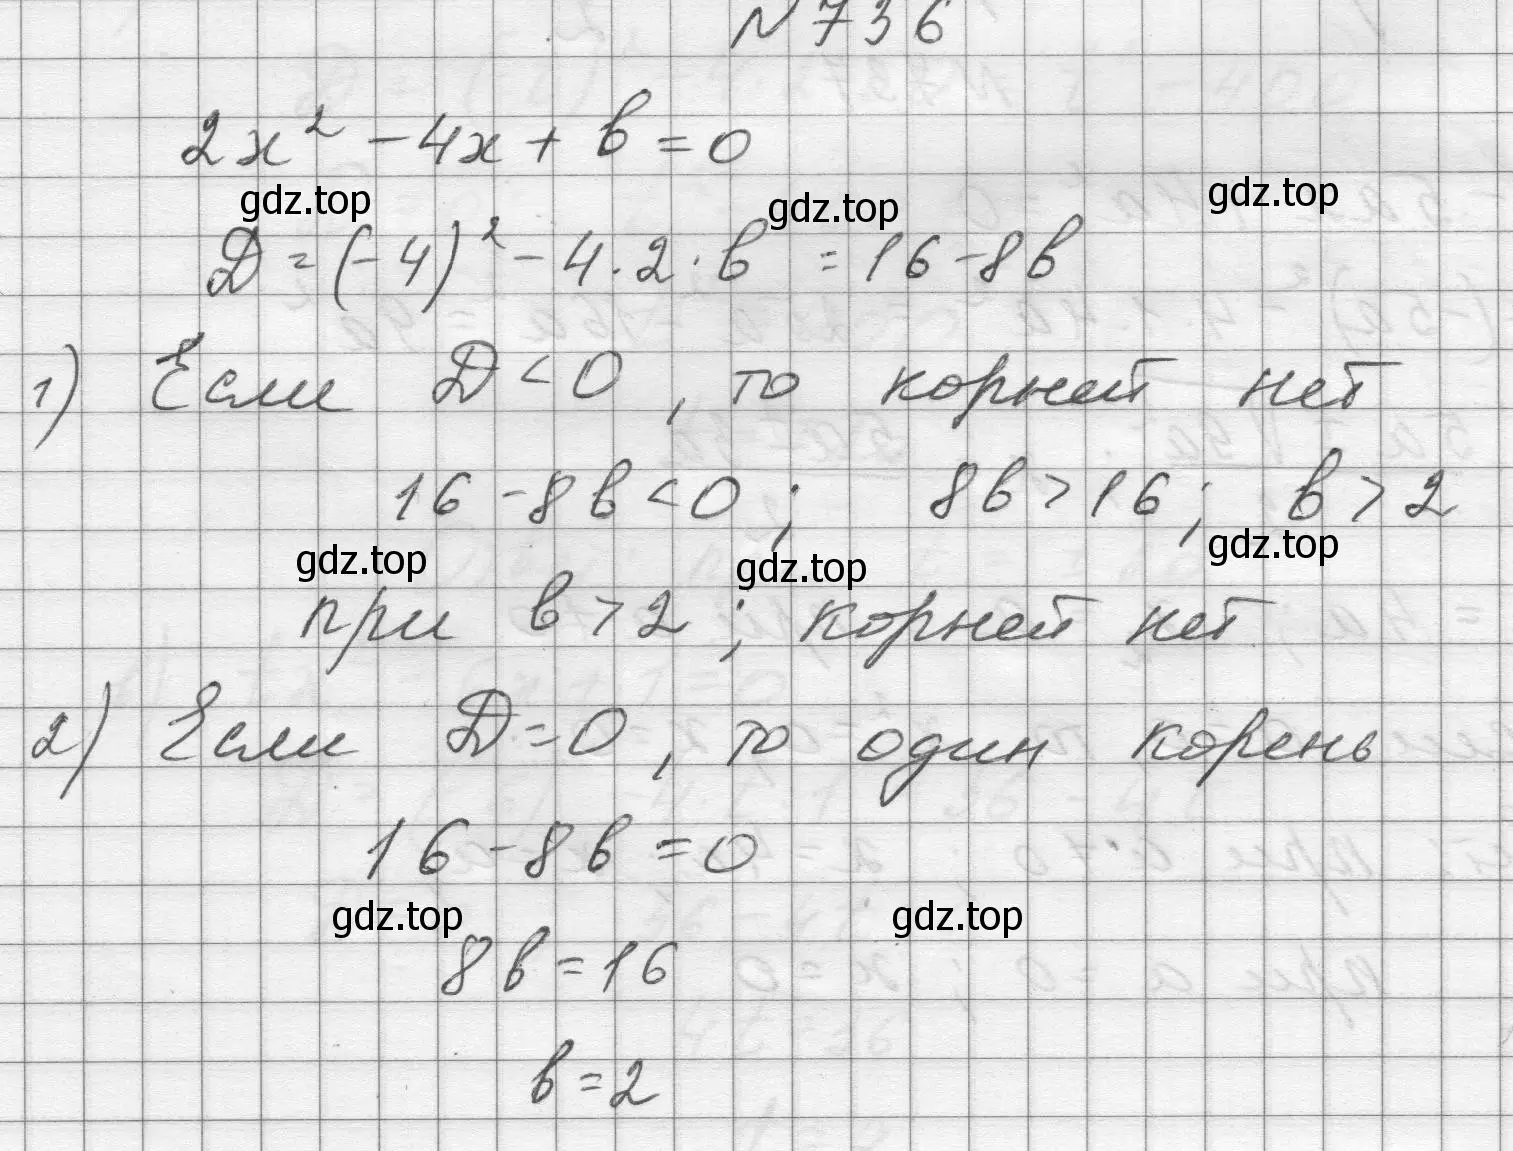 N 736
2x² - 4x + b = 0
gdz.top gdz.top gdz.top
D = (-4)² - 4 · 2 · b = 16 - 8b
1) Если D < 0, то корней нет
16 - 8b < 0; 8b > 16; b > 2
gdz.top gdz.top gdz.top
при b > 2; корней нет
2) Если D = 0, то один корень
16 - 8b = 0
gdz.top gdz.top
8b = 16
b = 2